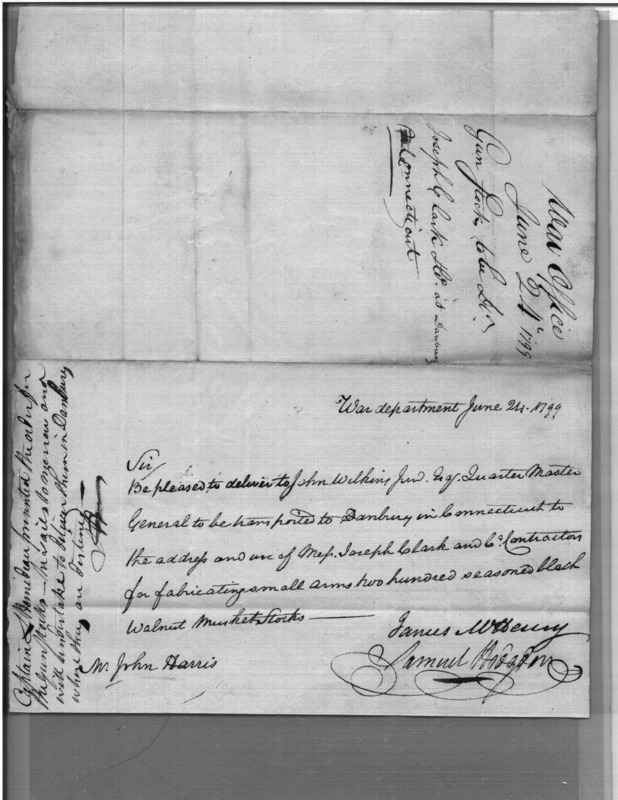 War Office
June 24th 1799
Gun Stocks to be Dd.
Joseph Clark &Co. at Danbury
Connecticut
War department June 24. 1799
Sir
Be pleased to deliver to John Wilkins Junr. Esq. Quarter Master
General to be transported to Danbury in Connecticut to
the address and use of Messrs. Joseph Clark and Co. Contractors
for fabricating small arms two hundred seasoned black
Walnut Musket Stocks—
James McHenry
Samuel Hodgdon
Mr John Harris
Captain
the Gun Stocks — he sails tomorrow and
will undertake to deliver them in Danbury
where they are destined —